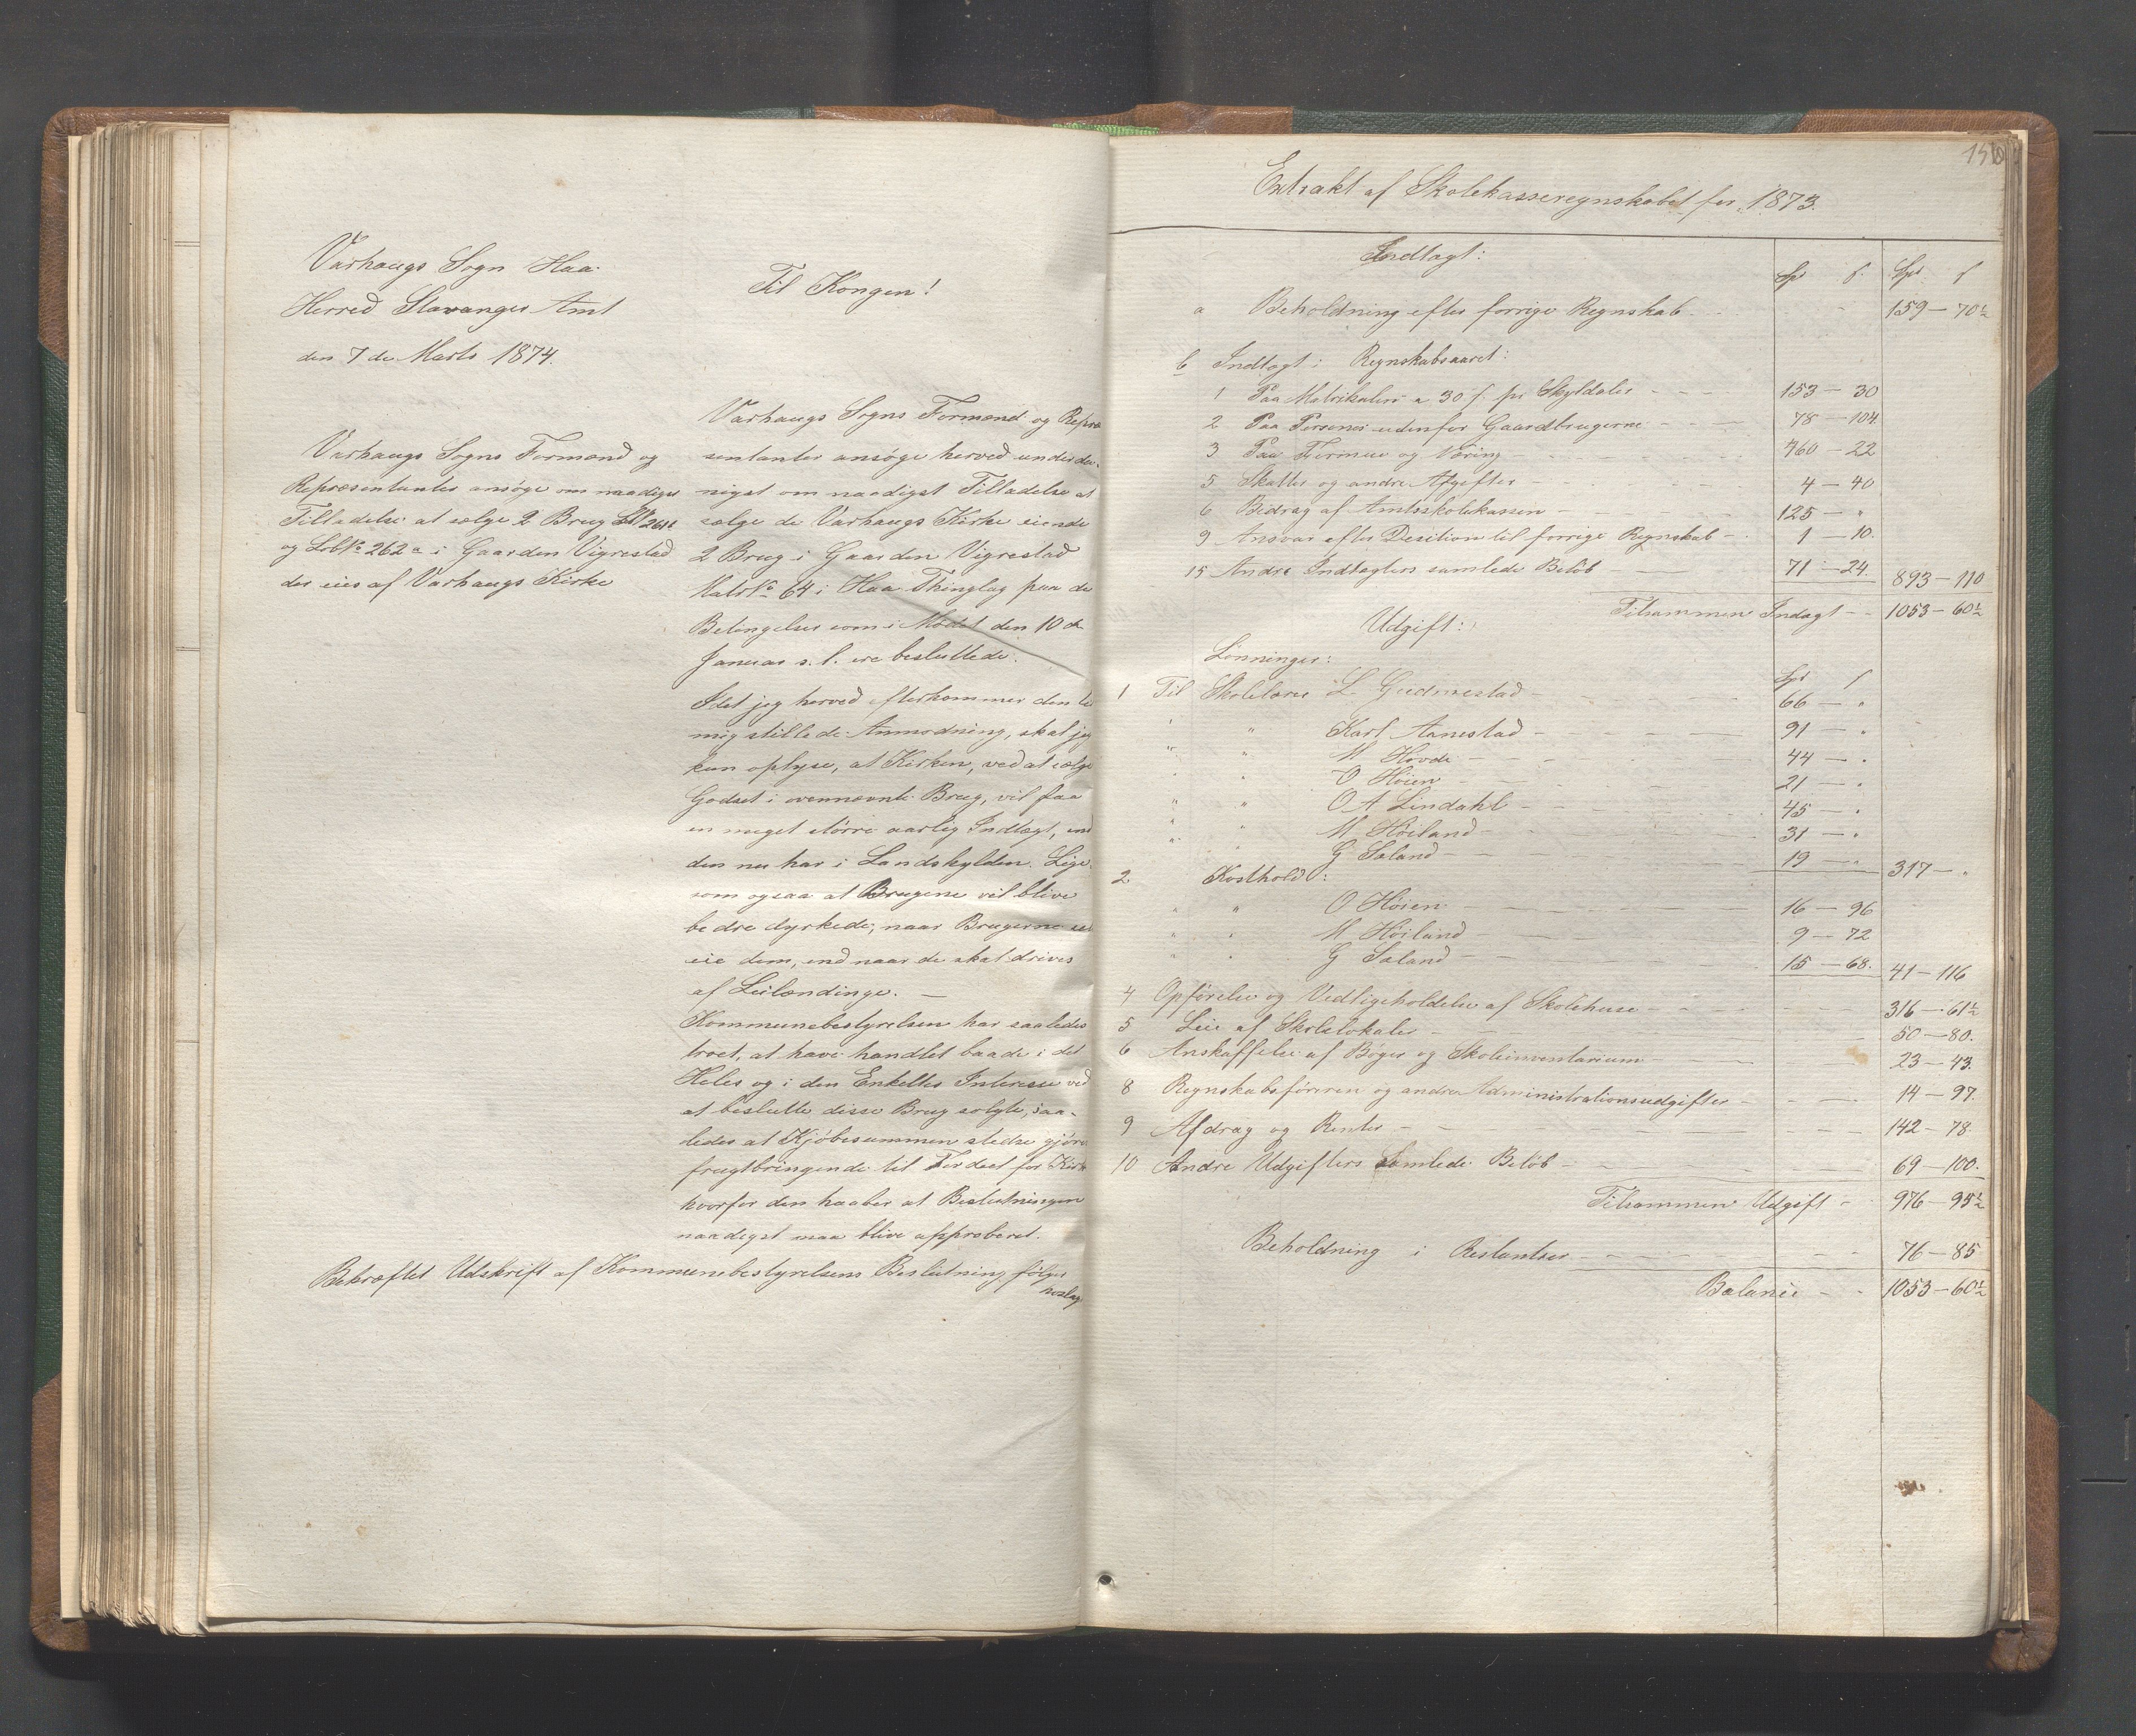 Varhaugs Sogn Haa
Herred Stavanger Amt
den 7de Marts 1874.
Varhaugs Sogns Formænd og
Repræsentanter ansøge om naadigst
Tilladelse at sælge 2 Brug LN 261
og LobNo 262a i Gaarden Vigrestad
der eies af Varhaugs Kirke
Til Kongen!
Varhaugs Sogns Formænd og Repræ
sentanter ansøge herved underda-
nigst om naadigst Tilladelse at
sælge de Varhaugs Kirke eiende
2 Brug i Gaarden Vigrestad
MatrNo 64 i Haa Thinglag paa de
Betingelser som i Mødet den 10de
Januar s. l. ere besluttede.
Idet jeg herved efterkommer den til
mig stillede Anmodning, skal jeg
kun oplyse, at Kirken, ved at sælge
Godset i ovennævnte Brug, vil faa
en meget større aarlig Indtægt, end
den nu har i Landskylden. Lige-
som ogsaa at Brugene vil blive
bedre dyrkede, naar Brugerne
eie dem, end naar de skal drives
af Leilændinge. —
Kommunebestyrelsen har saaledes
troet, at have handlet baade i det
Heles og i den Enkeltes Interesse ved
at beslutte disse Brug solgte, saa-
ledes at Kjøbesummen stedse gjøres
frugtbringende til Fordeel for Kirken
hvorfor den haaber at Beslutningen
naadigst maa blive approberet.
Bekræftet Udskrift af Kommunebestyrelsens Beslutning følger
vedlag
150
Extrakt af Skolekasseregnskabet for 1873.
Indtægt:
Spd ſ. Spd ſ
a Beholdning efter forrige Regnskab 159 — 70½
b Indtægt i Regnskabsaaret:
1 Paa Matrikulen a 30 ſ. pr Skyldaler 153 — 30
2 Paa Personer udenfor Gaardbrugerne 78 — 104
3 Paa Formue og Næring 460 — 22
5 Skatter og andre Afgifter 4 — 40
6 Bidrag af Amtsskolekassen 125 — "
9 Ansvar efter Desition til forrige Regnskab 1 — 10.
15 Andre Indtægters samlede Beløb 71 — 24. 893 — 110
Tilsammen Indtægt 1053 — 60½
Udgift:
Lønninger: Spd ſ
1 Til Skolelærer L. Gudmestad 66 — "
" " Karl Aanestad 91 — "
" " M Hovde 44 — "
" " O Høien 21 — "
" " O A Lindahl 45 — "
" " M Høiland 31 — "
" " G Søland 19 — " 317 — "
2 Kosthold:
" " O Høien 16 — 96
" " M Høiland 9 — 72
" " G Søland 15 — 68. 41 — 116
4 Opførelse og Vedligeholdelse af Skolehuse 316 — 61½
5 Leie af Skolelokaler 50 — 80.
6 Anskaffelse af Bøger og Skoleinventarium 23 — 43.
8 Regnskabsføreren og andre Administrationsudgifter 14 — 97.
9 Afdrag og Renter 142 — 78.
10 Andre Udgifters samlede Beløb 69 — 100.
Tilsammen Udgift 976 — 95½
Beholdning i Restantser 76 — 85
Balance 1053 — 60½